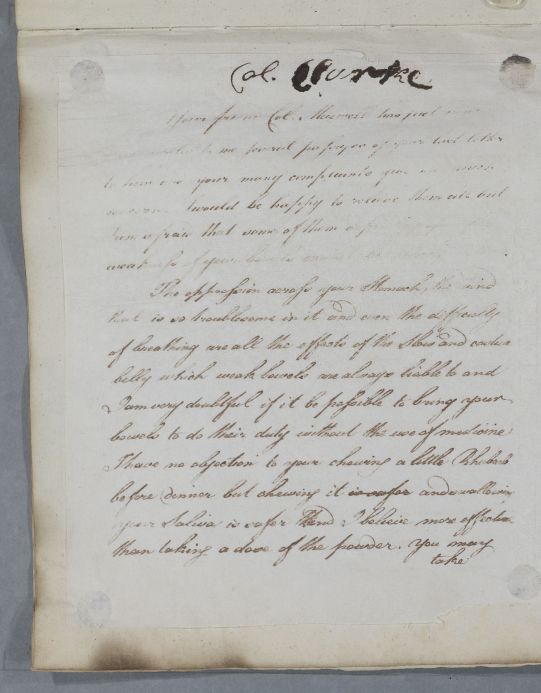 Col. Clarke
Your friend Col. Maxwell has just now
to me several passages of your last letter
to him on your many complaints you
would be happy to relieve them all but
I am afraid that some of them
weakness of your bowels
The oppression across your Stomach, the wind
that is so troublesome in it and even the difficulty
of breathing are all the effects of the Slow and costive
belly which weak bowels are always liable to and
I am very doubtful if it be possible to bring your
bowels to do their duty without the use of medicine
I have no objection to your chewing a little Rhubarb
before dinner but chewing it is safer and swallowing
your Saliva is safer And I believe more effectual
than taking a dose of the powder. You may
take